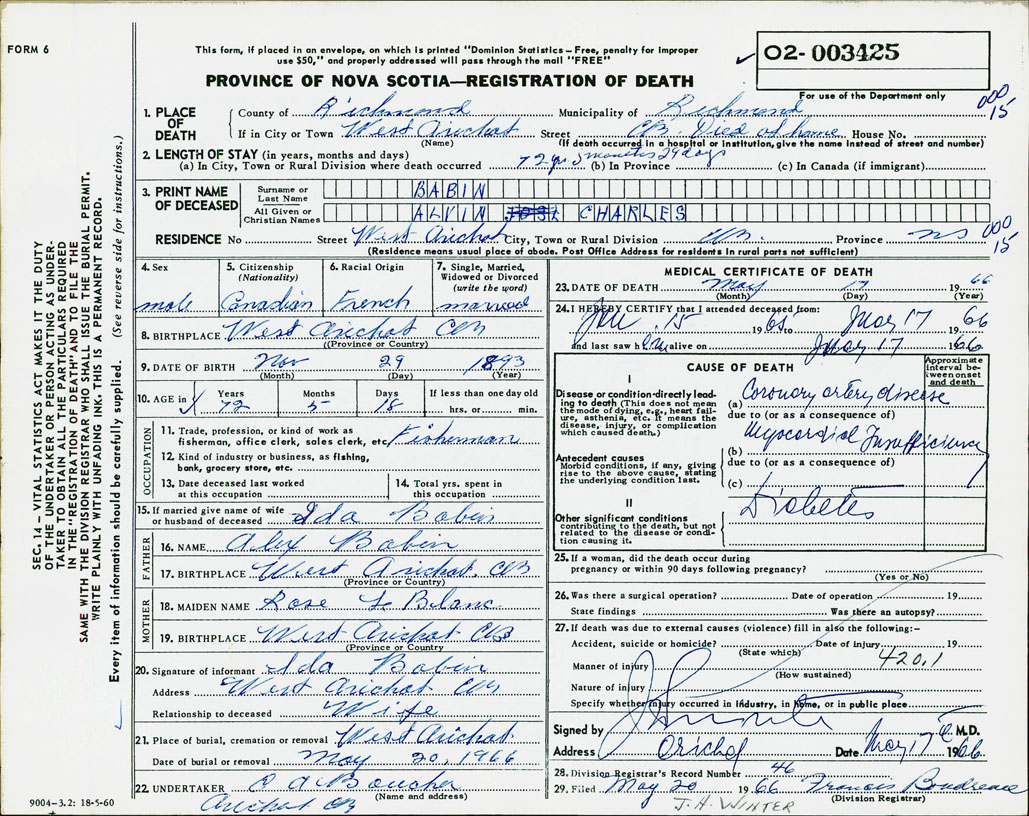 FORM 6
This form, if placed in an envelope, on which is printed "Dominion Statistics – Free, penalty for improper
use $50," and properly addressed will pass through the mail "FREE"
PROVINCE OF NOVA SCOTIA—REGISTRATION OF DEATH
02- 003425
For use of the Department only
000
15
1. PLACE OF DEATH
County of Richmond Municipality of Richmond
If in City or Town West Arichat Street CB. Died at home House No.
(Name) (If death occurred in a hospital or institution, give the name instead of street and number)
2. LENGTH OF STAY (in years, months and days)
(a) In City, Town or Rural Division where death occurred 72 yrs 5 months 29 days (b) In Province (c) In Canada (if immigrant)
3. PRINT NAME OF DECEASED
Surname or Last Name BABIN
All Given or Christian Names ALVIN CHARLES
000
15
RESIDENCE No Street West Arichat City, Town or Rural Division CB. Province NS
(Residence means usual place of abode. Post Office Address for residents in rural parts not sufficient)
4. Sex male
5. Citizenship (Nationality) Canadian
6. Racial Origin French
7. Single, Married, Widowed or Divorced (write the word) married
8. BIRTHPLACE West Arichat CB
(Province or Country)
9. DATE OF BIRTH Nov 29 1893
(Month) (Day) (Year)
10. AGE in Years 72 Months 5 Days 18 If less than one day old hrs. or min.
OCCUPATION
11. Trade, profession, or kind of work as fisherman, office clerk, sales clerk, etc. Fisherman
12. Kind of industry or business, as fishing, bank, grocery store, etc.
13. Date deceased last worked at this occupation
14. Total yrs. spent in this occupation
15. If married give name of wife or husband of deceased Ida Babin
FATHER
16. NAME Alex Babin
17. BIRTHPLACE West Arichat, CB
(Province or Country)
MOTHER
18. MAIDEN NAME Rose Le Blanc
19. BIRTHPLACE West Arichat CB
(Province or Country)
20. Signature of informant Ida Babin
Address West Arichat CB
Relationship to deceased Wife
21. Place of burial, cremation or removal West Arichat
Date of burial or removal May 20, 1966
22. UNDERTAKER C A Boucher
(Name and address)
Arichat CB
9004-3.2: 18-5-60
MEDICAL CERTIFICATE OF DEATH
23. DATE OF DEATH May 17 1966
(Month) (Day) (Year)
24. I HEREBY CERTIFY that I attended deceased from:
Jan 15 1965 to May 17 1966
and last saw him alive on May 17 1966
CAUSE OF DEATH
Approximate interval between onset and death
I
Disease or condition directly leading to death (This does not mean the mode of dying, e.g., heart failure, asthenia, etc. It means the disease, injury, or complication which caused death.)
(a) Coronary artery disease
due to (or as a consequence of)
Antecedent causes
Morbid conditions, if any, giving rise to the above cause, stating the underlying condition last.
(b) Myocardial Insufficiency
due to (or as a consequence of)
(c)
II
Other significant conditions contributing to the death, but not related to the disease or condition causing it.
Diabetes
25. If a woman, did the death occur during
pregnancy or within 90 days following pregnancy?
(Yes or No)
26. Was there a surgical operation? Date of operation 19
State findings Was there an autopsy?
27. If death was due to external causes (violence) fill in also the following:–
Accident, suicide or homicide? Date of injury 19
(State which) 420.1
Manner of injury
(How sustained)
Nature of injury
Specify whether injury occurred in industry, in home, or in public place
Signed by M.D.
Address Arichat Date May 17 1966
28. Division Registrar's Record Number 46
29. Filed May 20 1966 Francis Boudreau
(Division Registrar)
J.H. WINTER
SEC. 14 – VITAL STATISTICS ACT MAKES IT THE DUTY
OF THE UNDERTAKER OR PERSON ACTING AS UNDER-
TAKER TO OBTAIN ALL THE PARTICULARS REQUIRED
IN THE "REGISTRATION OF DEATH" AND TO FILE THE
SAME WITH THE DIVISION REGISTRAR WHO SHALL ISSUE THE BURIAL PERMIT.
WRITE PLAINLY WITH UNFADING INK. THIS IS A PERMANENT RECORD.
Every item of information should be carefully supplied. (See reverse side for instructions.)